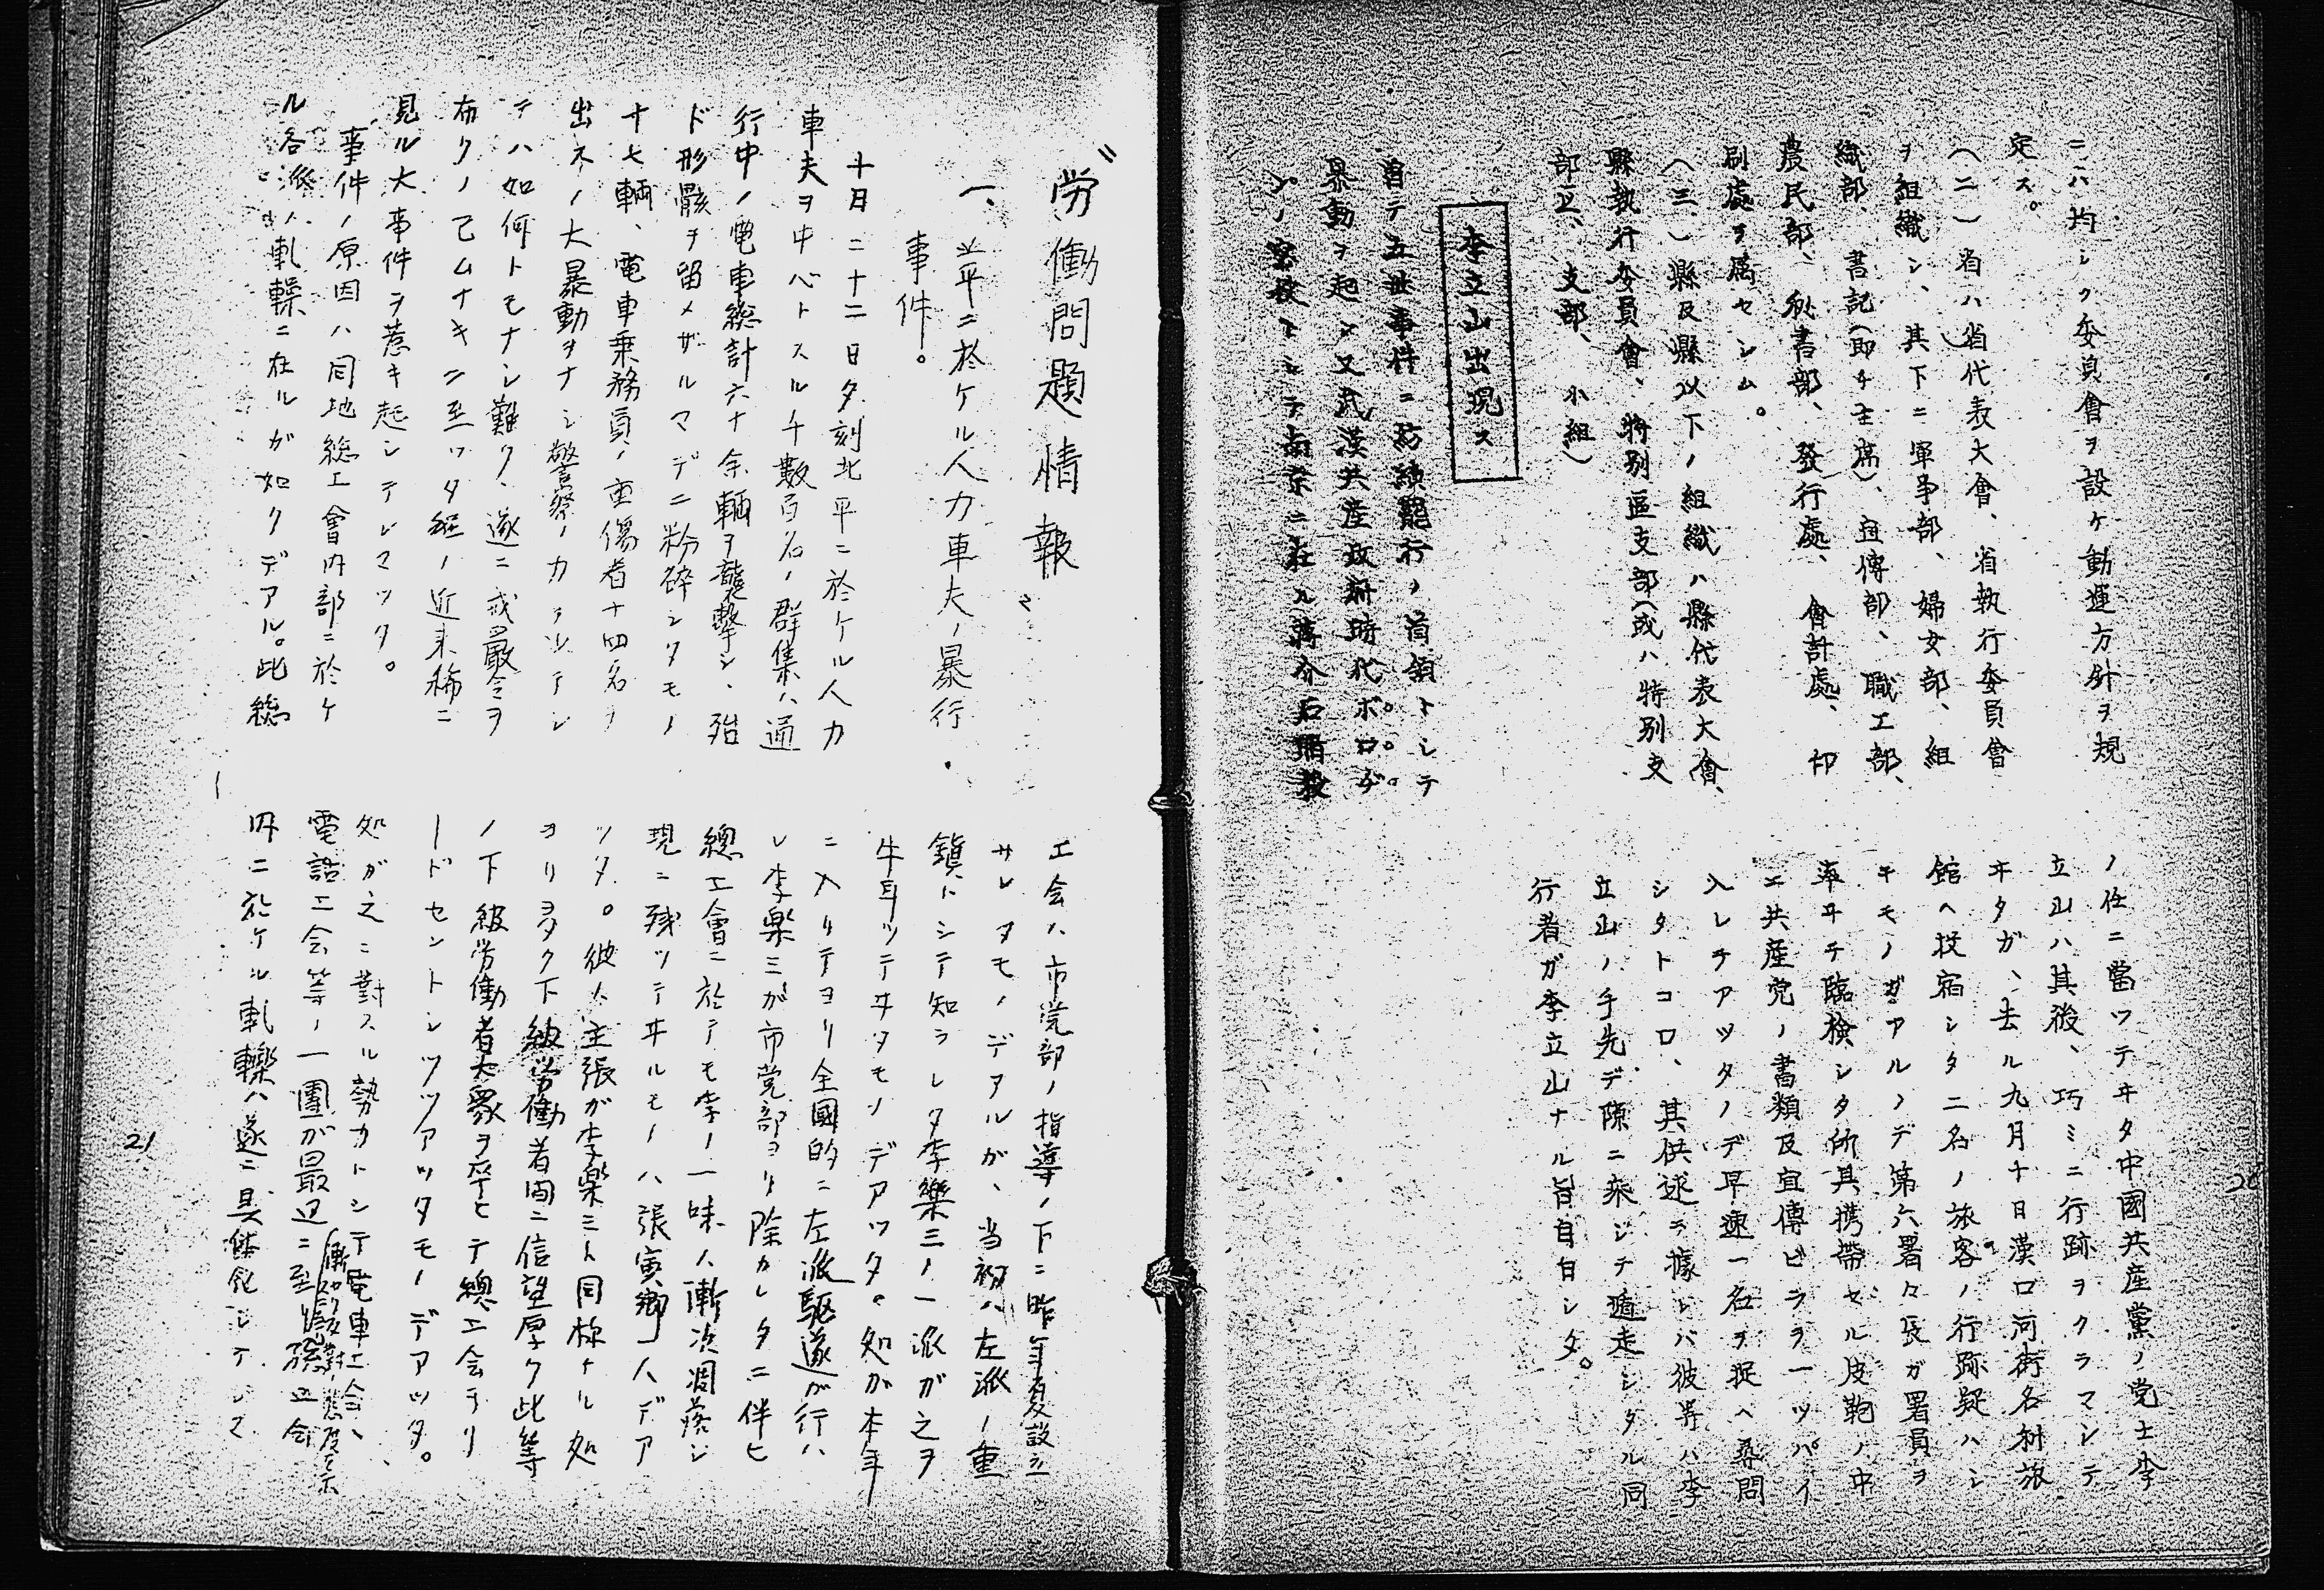 ニハ均シク委員會ヲ設ケ動運方針ヲ規
定ス。
(二)省ハ省代表大會、省執行委員會
ヲ組織シ、其下ニ軍事部、婦女部、組
織部、書記(即チ主席)、宣傳部、職工部、
農民部、秘書部、發行處、會計處、印
刷處ヲ属セシム。
(三)縣及縣以下ノ組織ハ縣代表大會、
縣執行委員會、特別區支部(或ハ特別支
部)、支部、小組)
李立山出現ス
曽テ五世事件ニ紡績罷行ノ首領トシテ
暴動ヲ起シ又武漢共産政府時代ボロヂ
ンノ密投トシテ南京ニ在ル蒋介石
ノ任ニ當ツテヰタ中國共産黨ノ党士李
立山ハ其後、巧ミニ行跡ヲクラマシテ
ヰタガ、去ル九月十日漢口河街名利旅
館ヘ投宿シタ二名ノ旅客ノ行跡疑ハシ
キモノガアルノデ第六署々長ガ署員ヲ
率ヰテ臨檢シタ所其携帶セル皮鞄ノ中
ニ共産党ノ書類及宣傳ビラヲ一ツパイ
入レテアツタノデ早速一名ヲ捉ヘ尋問
シタトコロ、其供述ニ據レバ彼等ハ李
立山ノ手先デ隙ニ乘ジテ遁走シタル同
行者ガ李立山ナル旨自白シタ。
労働問題情報
一、北平ニ於ケル人力車夫ノ暴行
事件。
十月二十二日夕刻北平ニ於ケル人力
車夫ヲ中心トスル千數百名ノ群集ハ通
行中ノ電車総計六十余輛ヲ襲撃シ、殆
ド形骸ヲ留メザルマデニ粉砕シタモノ
十七輛、電車乗務員ノ重傷者十四名ヲ
出スノ大暴動ヲナシ警察ノカヲシテシ
テハ如何トモナシ難ク、遂ニ戒嚴令ヲ
布クノ已ムナキニ至ツタ程ノ近来稀ニ
見ル大事件ヲ惹キ起シテシマツタ。
事件ノ原因ハ同地総工會内部ニ於ケ
ル各派ノ軋轢ニ在ルガ如クデアル。此総
工会ハ市党部ノ指導ノ下ニ昨年夏設立
サレタモノデアルガ、当初ハ左派ノ重
鎮トシテ知ラレタ李樂三ノ一派ガ之ヲ
牛耳ツテヰタモノデアツタ。処ガ本年
ニ入リテヨリ全國的ニ左派駆逐ガ行ハ
レ李樂三ガ市党部ヨリ除カレタニ伴ヒ
總工會ニ於テモ李ノ一味ハ漸次凋落シ
現ニ残ツテヰルモノハ張寅卿一人デア
ツタ。彼ハ主張ガ李樂三ト同様ナル処
ヨリ多ク下級労働者間ニ信望厚ク此等
ノ下級労働者大衆ヲ率ヒテ總工会ヲリ
ードセントシツツアツタモノデアツタ。
処ガ之ニ對スル勢力トシテ電車工会、
電話工会等ノ一團ガ最近ニ至リ總工会
内ニ於ケル軋轢ハ遂ニ具体化シテシマ
21